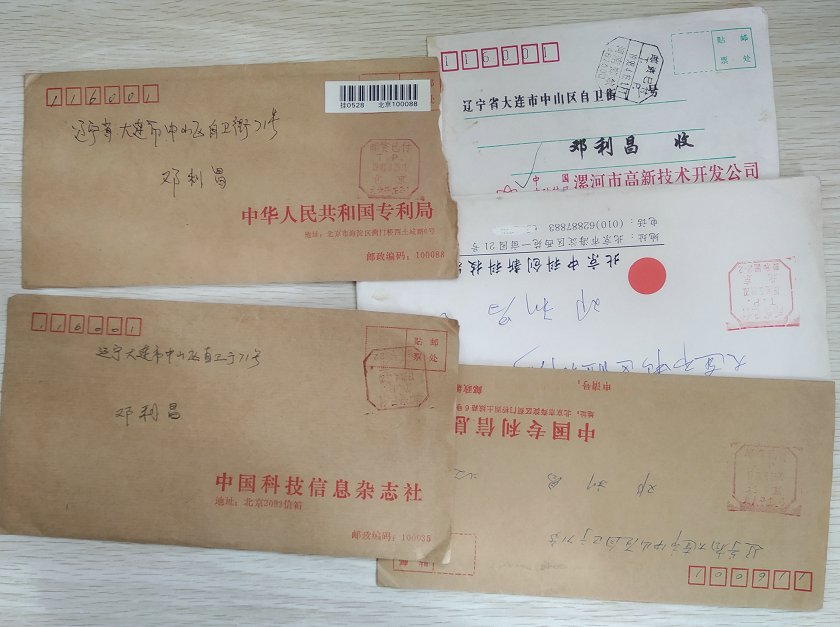 116001
挂0528 北京100088
辽宁省大连市中山区自卫街71号
邮资已付
T.P.
北京
邓利昌
中华人民共和国专利局
地址：北京市海淀区蓟门桥西土城路6号
邮政编码：100088
116001
贴 邮
票 处
辽宁省大连市中山区自卫街
邓利昌 收
中 国
漯河市高新技术开发公司
北京中科创新科技
地址：北京市海淀区西苑一亩园21号
电话：(010)62887883
邓利昌
116001
贴 邮
票 处
辽宁大连市中山区自卫71号
邓利昌
中国科技信息杂志社
地址：北京2093信箱
邮政编码：100035
116001
邓利昌
中国专利信息
地址：北京市海淀区蓟门桥西土城路6号
申请号：